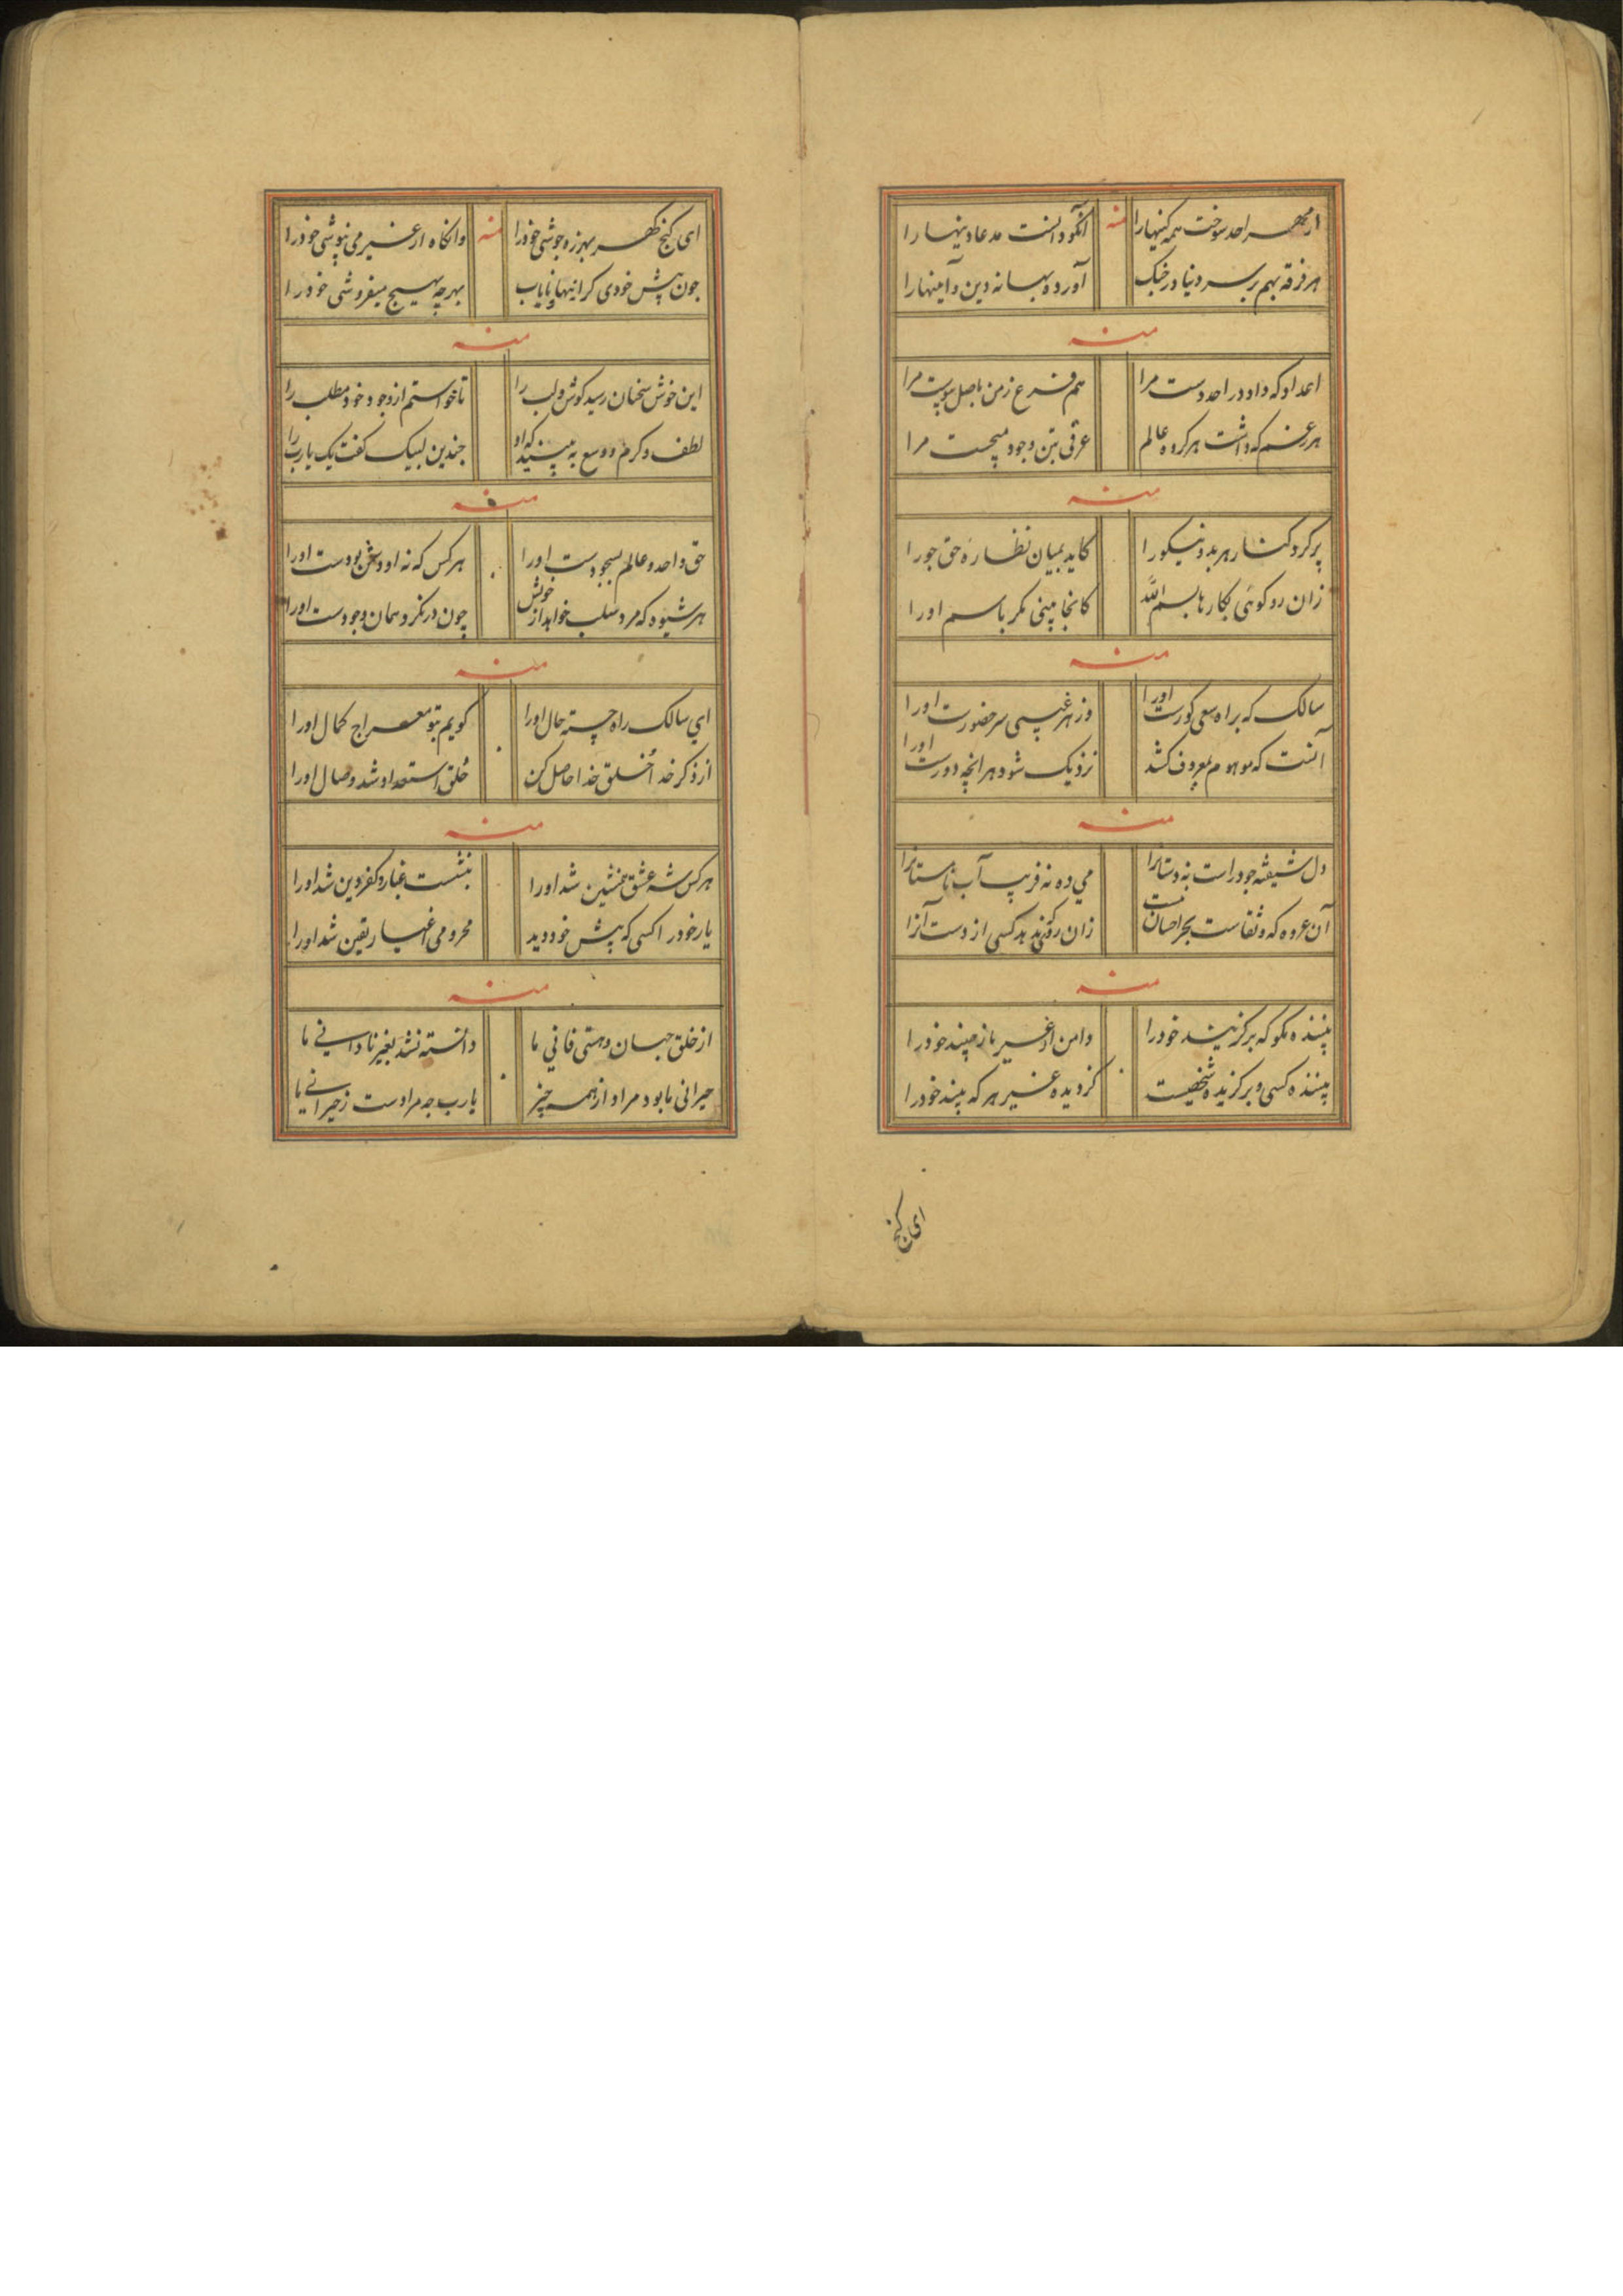 از مهر احد سوخت همه کینها را منه آنکو دانست مدعا دینها را
هر فرقه بهم بر سر دنیا در جنک آورده بهانه دین و آیینها را
منه
اعداد که داد در احد دست مرا هم فرع زمن باصل پیوست مرا
هر رغم که داشت هر کروه عالم عرقی بتن وجود میجست مرا
منه
پر کرد کنار هر بد و نیکورا کاید بمیان نظاره حق جورا
زان رو کوئی بکارها بسم الله کانجا بینی مکر باسم اورا
منه
سالک که براه سعی کورست اورا وز هر غیبی سر حضورست اورا
آنست که موهوم بمعروف کشد نزدیک شود هرانچه دورست اورا
منه
دل شیفته جود راست نه دستانرا می ده نه فریب آب تا مستانرا
آن عروه که وثقاست بجز احسان نیست زان رو کندهد کسی از دست آنرا
منه
بیننده مکو که برکزیند خودرا دامن از غیر باز چیند خودرا
بیننده کسی و برکزیده شخصیست کز دیده غیر هر که بیند خودرا
ای کنج
ای کنج کهر بهرزه جوشی خودرا منه وانکاه از غیر می نپوشی خودرا
جون پیش خودی کرانبها و نایاب بهرچه بهیج میفروشی خودرا
منه
این خوش سخنان رسید کوش و لب را تا خواستم از وجود خود مطلب را
لطف و کرم و وسع به بینید که او جندین لبیک کفت یک یارب را
منه
حق واحد و عالم بسجودست اورا هر کس که نه او دشمن بودست اورا
هر شیوه که مرد سلب خواهد از خویش چون در نکرد همان وجودست اورا
منه
ای سالک راه جسته حال اورا کویم بتو معراج کمال اورا
از ذکر خدا خلق خدا حاصل کن خلق استعداد شد وصال اورا
منه
هر کس شه عشق همنشین شد اورا بنشست غبار و کفر دین شد اورا
یار خود را کسی که پیش خود دید محرومی اغیار یقین شد اورا
منه
از خلق جهان و هستی فانی ما دانسته نشد بغیر نادانی ما
حیرانی ما بود مراد از همه چیز یارب جه مرادست زحیرانی ما